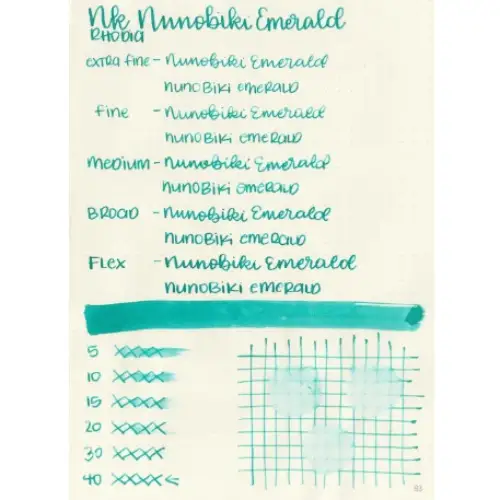 NK Nunobiki Emerald
RHODIA
extra fine - Nunobiki Emerald
nunobiki emerald
fine - Nunobiki Emerald
nunobiki emerald
medium - Nunobiki Emerald
nunobiki emerald
BROAD - Nunobiki Emerald
nunobiki emerald
FLEX - Nunobiki Emerald
nunobiki emerald
5 XXXX
10 XXXX
15 XXXX
20 XXXX
30 XXXX
40 XXXX